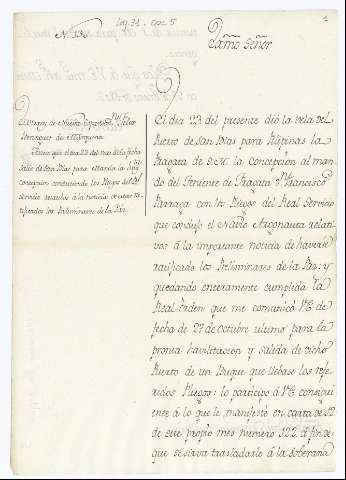 Leg.31 - exp. 5
1
N. 131
Exmo Señor
El Virrey de Nueva España Dn Felix
Berenguer de Marquina
Avisa que el dia 23 del mes de la fecha
salio de San Blas para Manila la frag.ta
Concepcion conduciendo los Pliegos del Rl
servicio relativos à la noticia de estar ra-
tificados los Preliminares de la Paz.
El dia 23 del presente dió la vela del
Puerto de San Blas para Filipinas la
Fragata de S.M. la Concepcion al man-
do del Teniente de Fragata Dn Francisco
Parraga con los Pliegos del Real Servicio
que condujo el Navio Argonauta relati-
vos à la importante noticia de haverse
ratificado los Preliminares de la Paz: y
quedando enteramente cumplida la
Real orden que me comunicó V.E. de
fecha de 27 de octubre ultimo para la
pronta havilitacion y salida de dicho
Puerto de un Buque que llebase los refe-
ridos Pliegos: lo participo à V.E. consiguien-
te à lo que le manifesté en carta de 12
de este propio mes numero 122 à fin de
que se sirva trasladarlo à la soberana